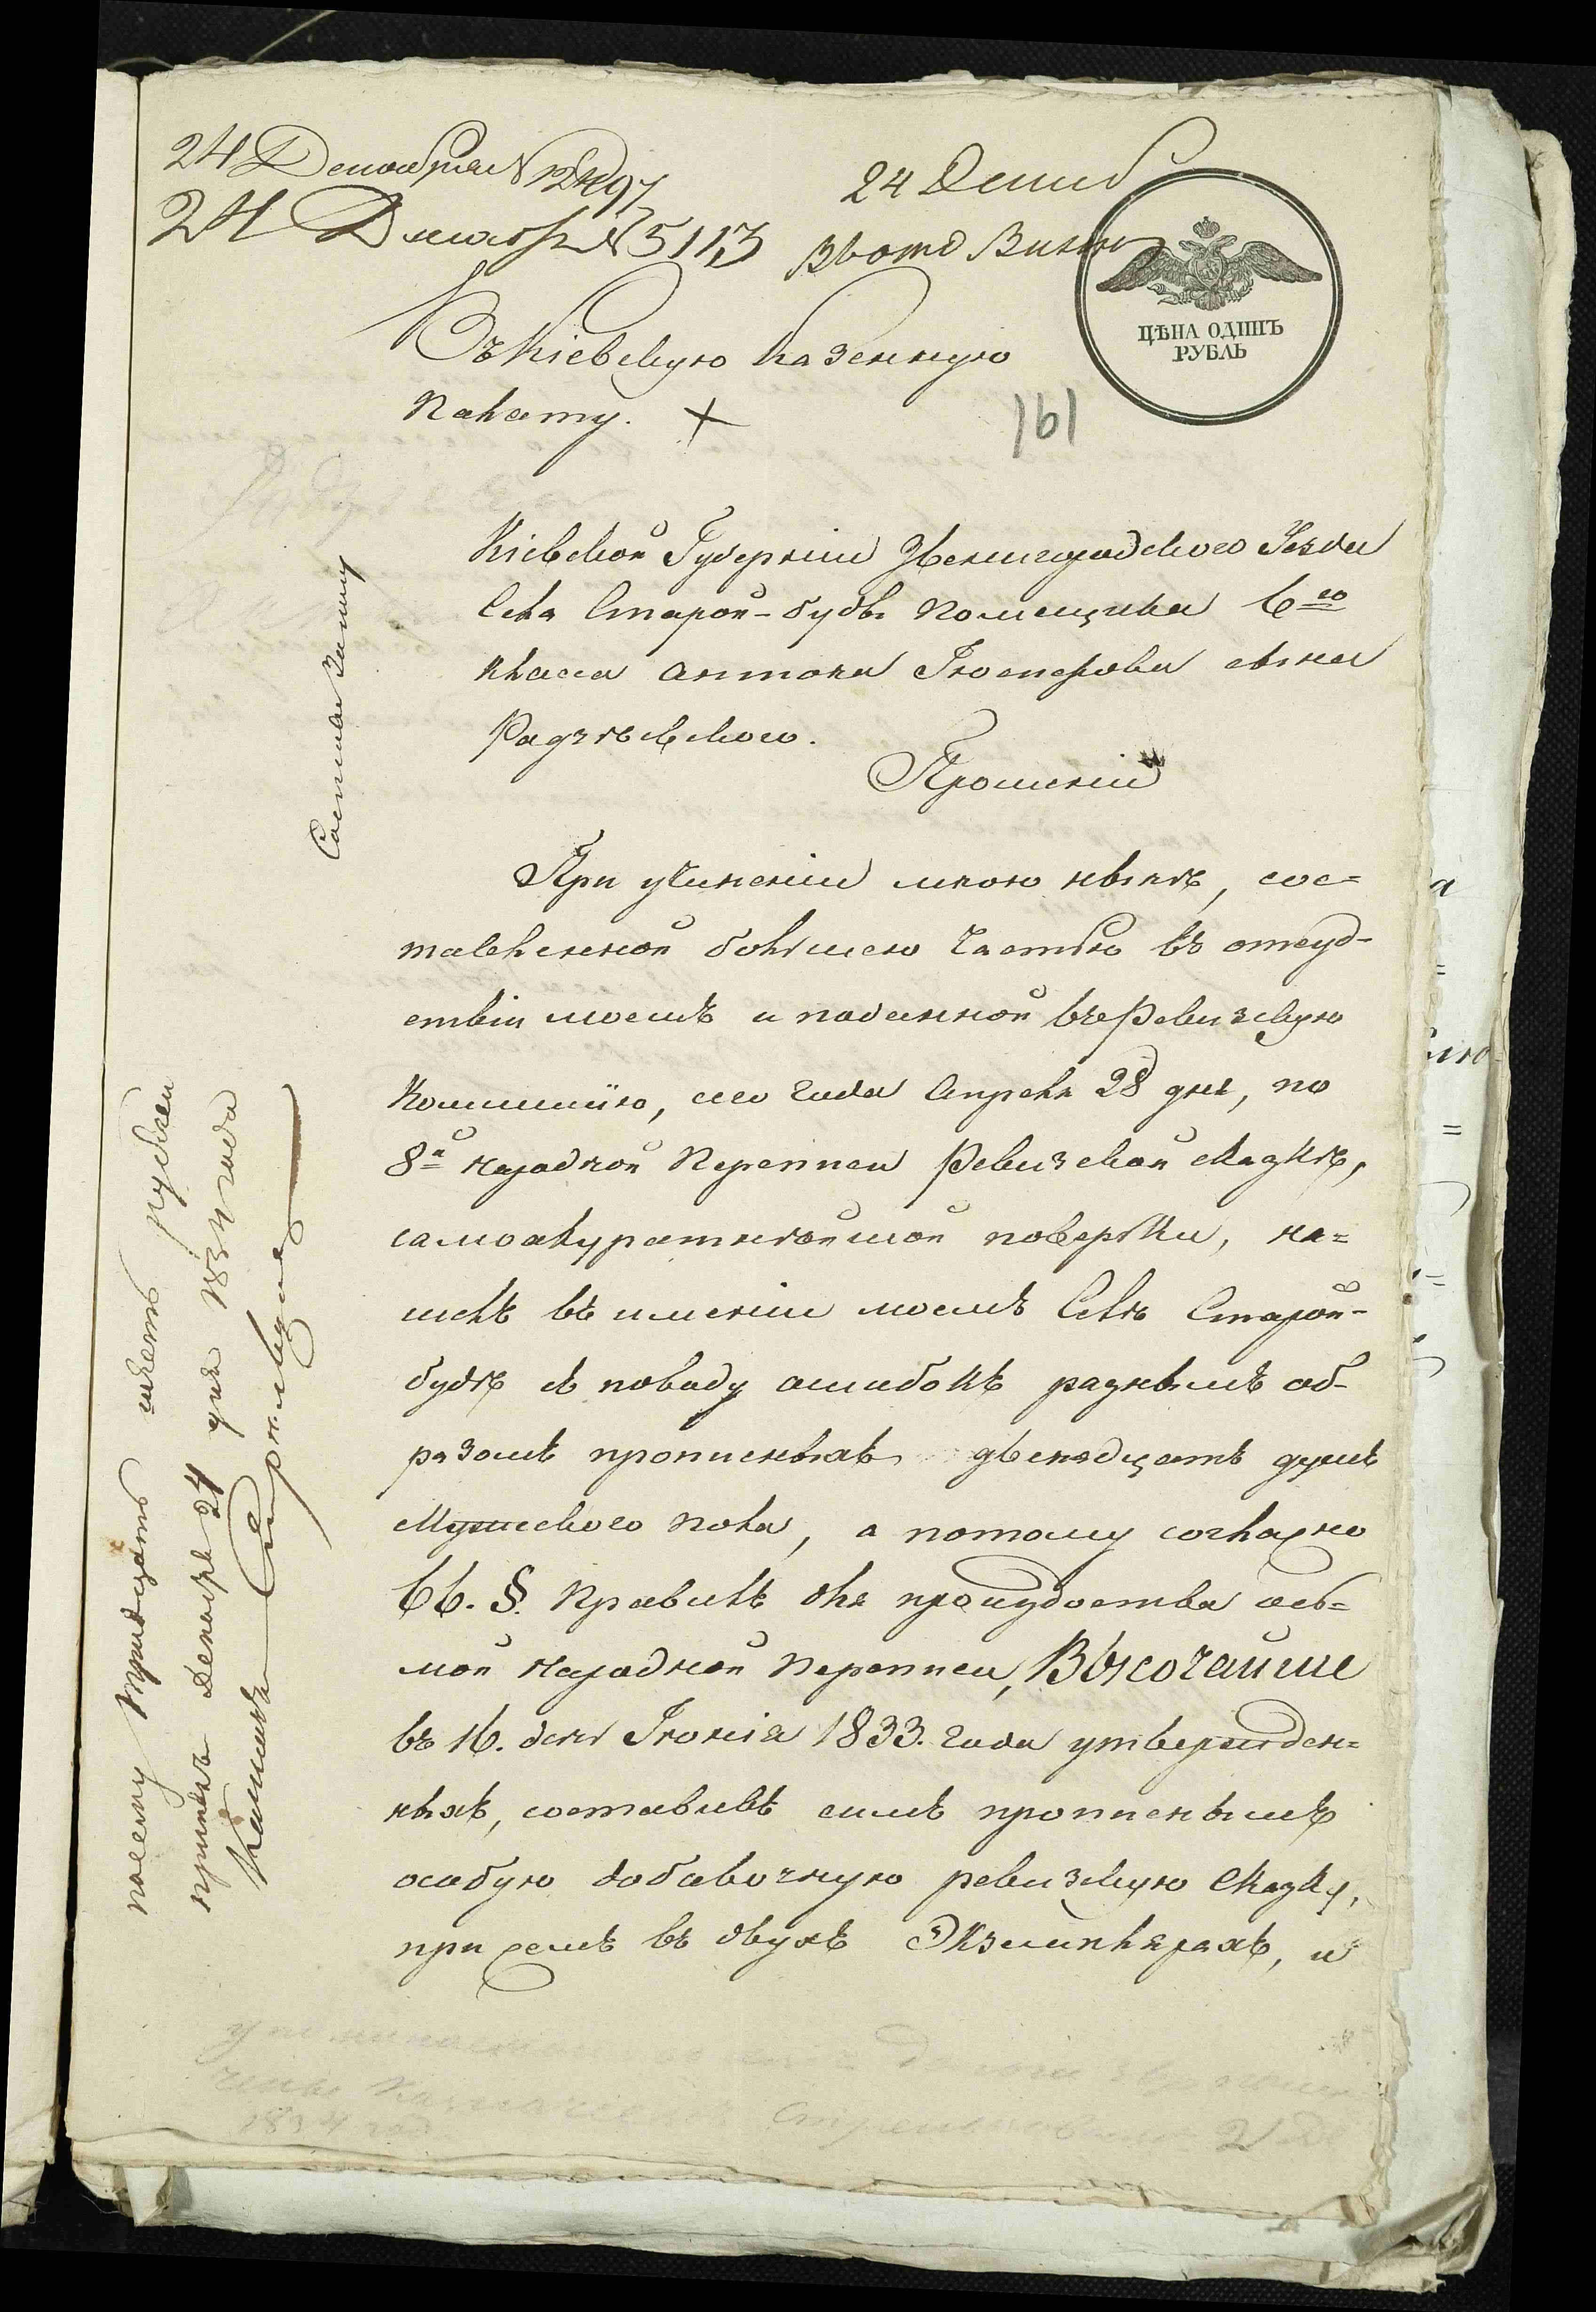 24 Декабря №
24 Декабр № 5113
24 Декаб
ЦѢНА ОДИНЪ
РУБЛЬ
Въ Кіевскую Казенную
Палату.
161
Кіевской Губерніи Звенигородского Уезда
Села Старой-буды Помещика 6го
класа Антона Іосифова сына
Радзѣевского.
Прошеніе
При учиненіи мною нынѣ, сос=
тавленной большею частью въ отсуд-
ствіи моемъ и поданной въ Ревизскую
Коммисію, сего года Апреля 28 дня, по
8й народной Переписи Ревизской сказкѣ,
самоакуратнѣйшой поверки, на=
шелъ въ именіи моемъ Селѣ Старой-
будѣ съ поводу ошибокъ разнымъ об-
разомъ прописныхъ двенадцать душъ
Мужеского пола, а потому согласно
66. §. Правилъ для производства ось=
мой народной Переписи, Высочайше
въ 16. день Іюнія 1833. года утвержден=
ныхъ, составивъ симъ прописнымъ
особую добавочную ревизскую сказку,
при семъ въ двухъ Экземплярахъ, и
поесту тридцать шесть рублей
принялъ Декабря 24 дня 1834 года